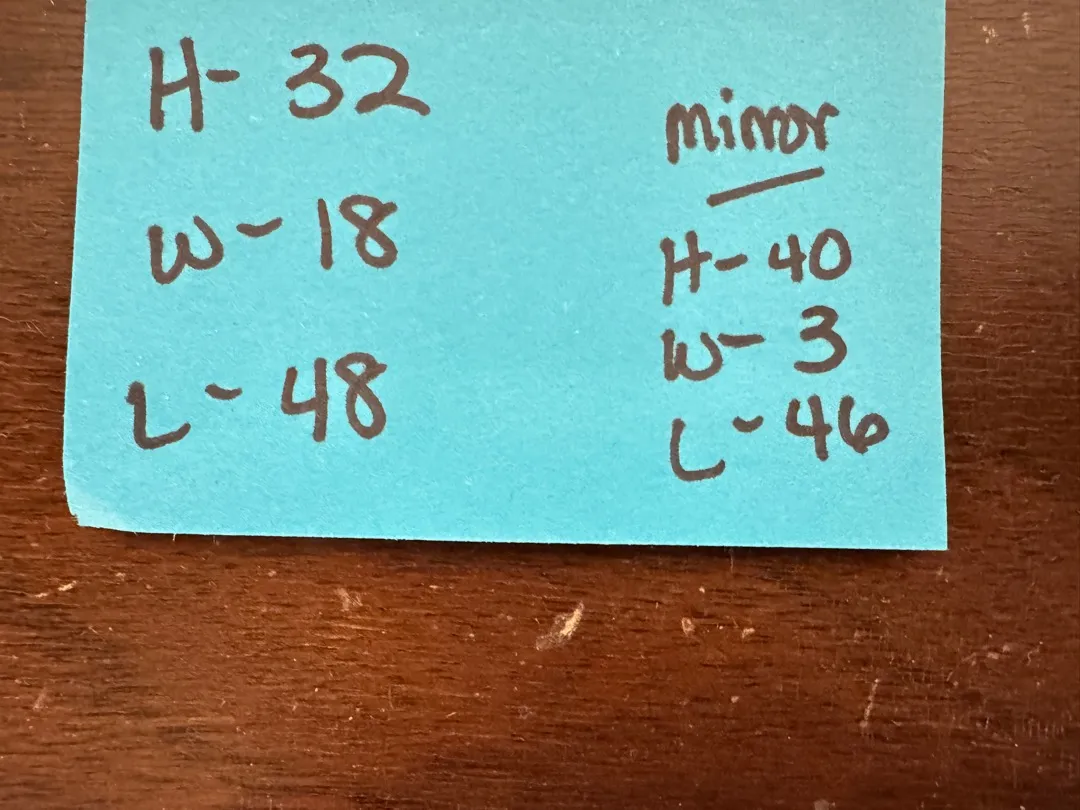 H- 32
W- 18
L- 48
mirror
H- 40
W- 3
L- 46